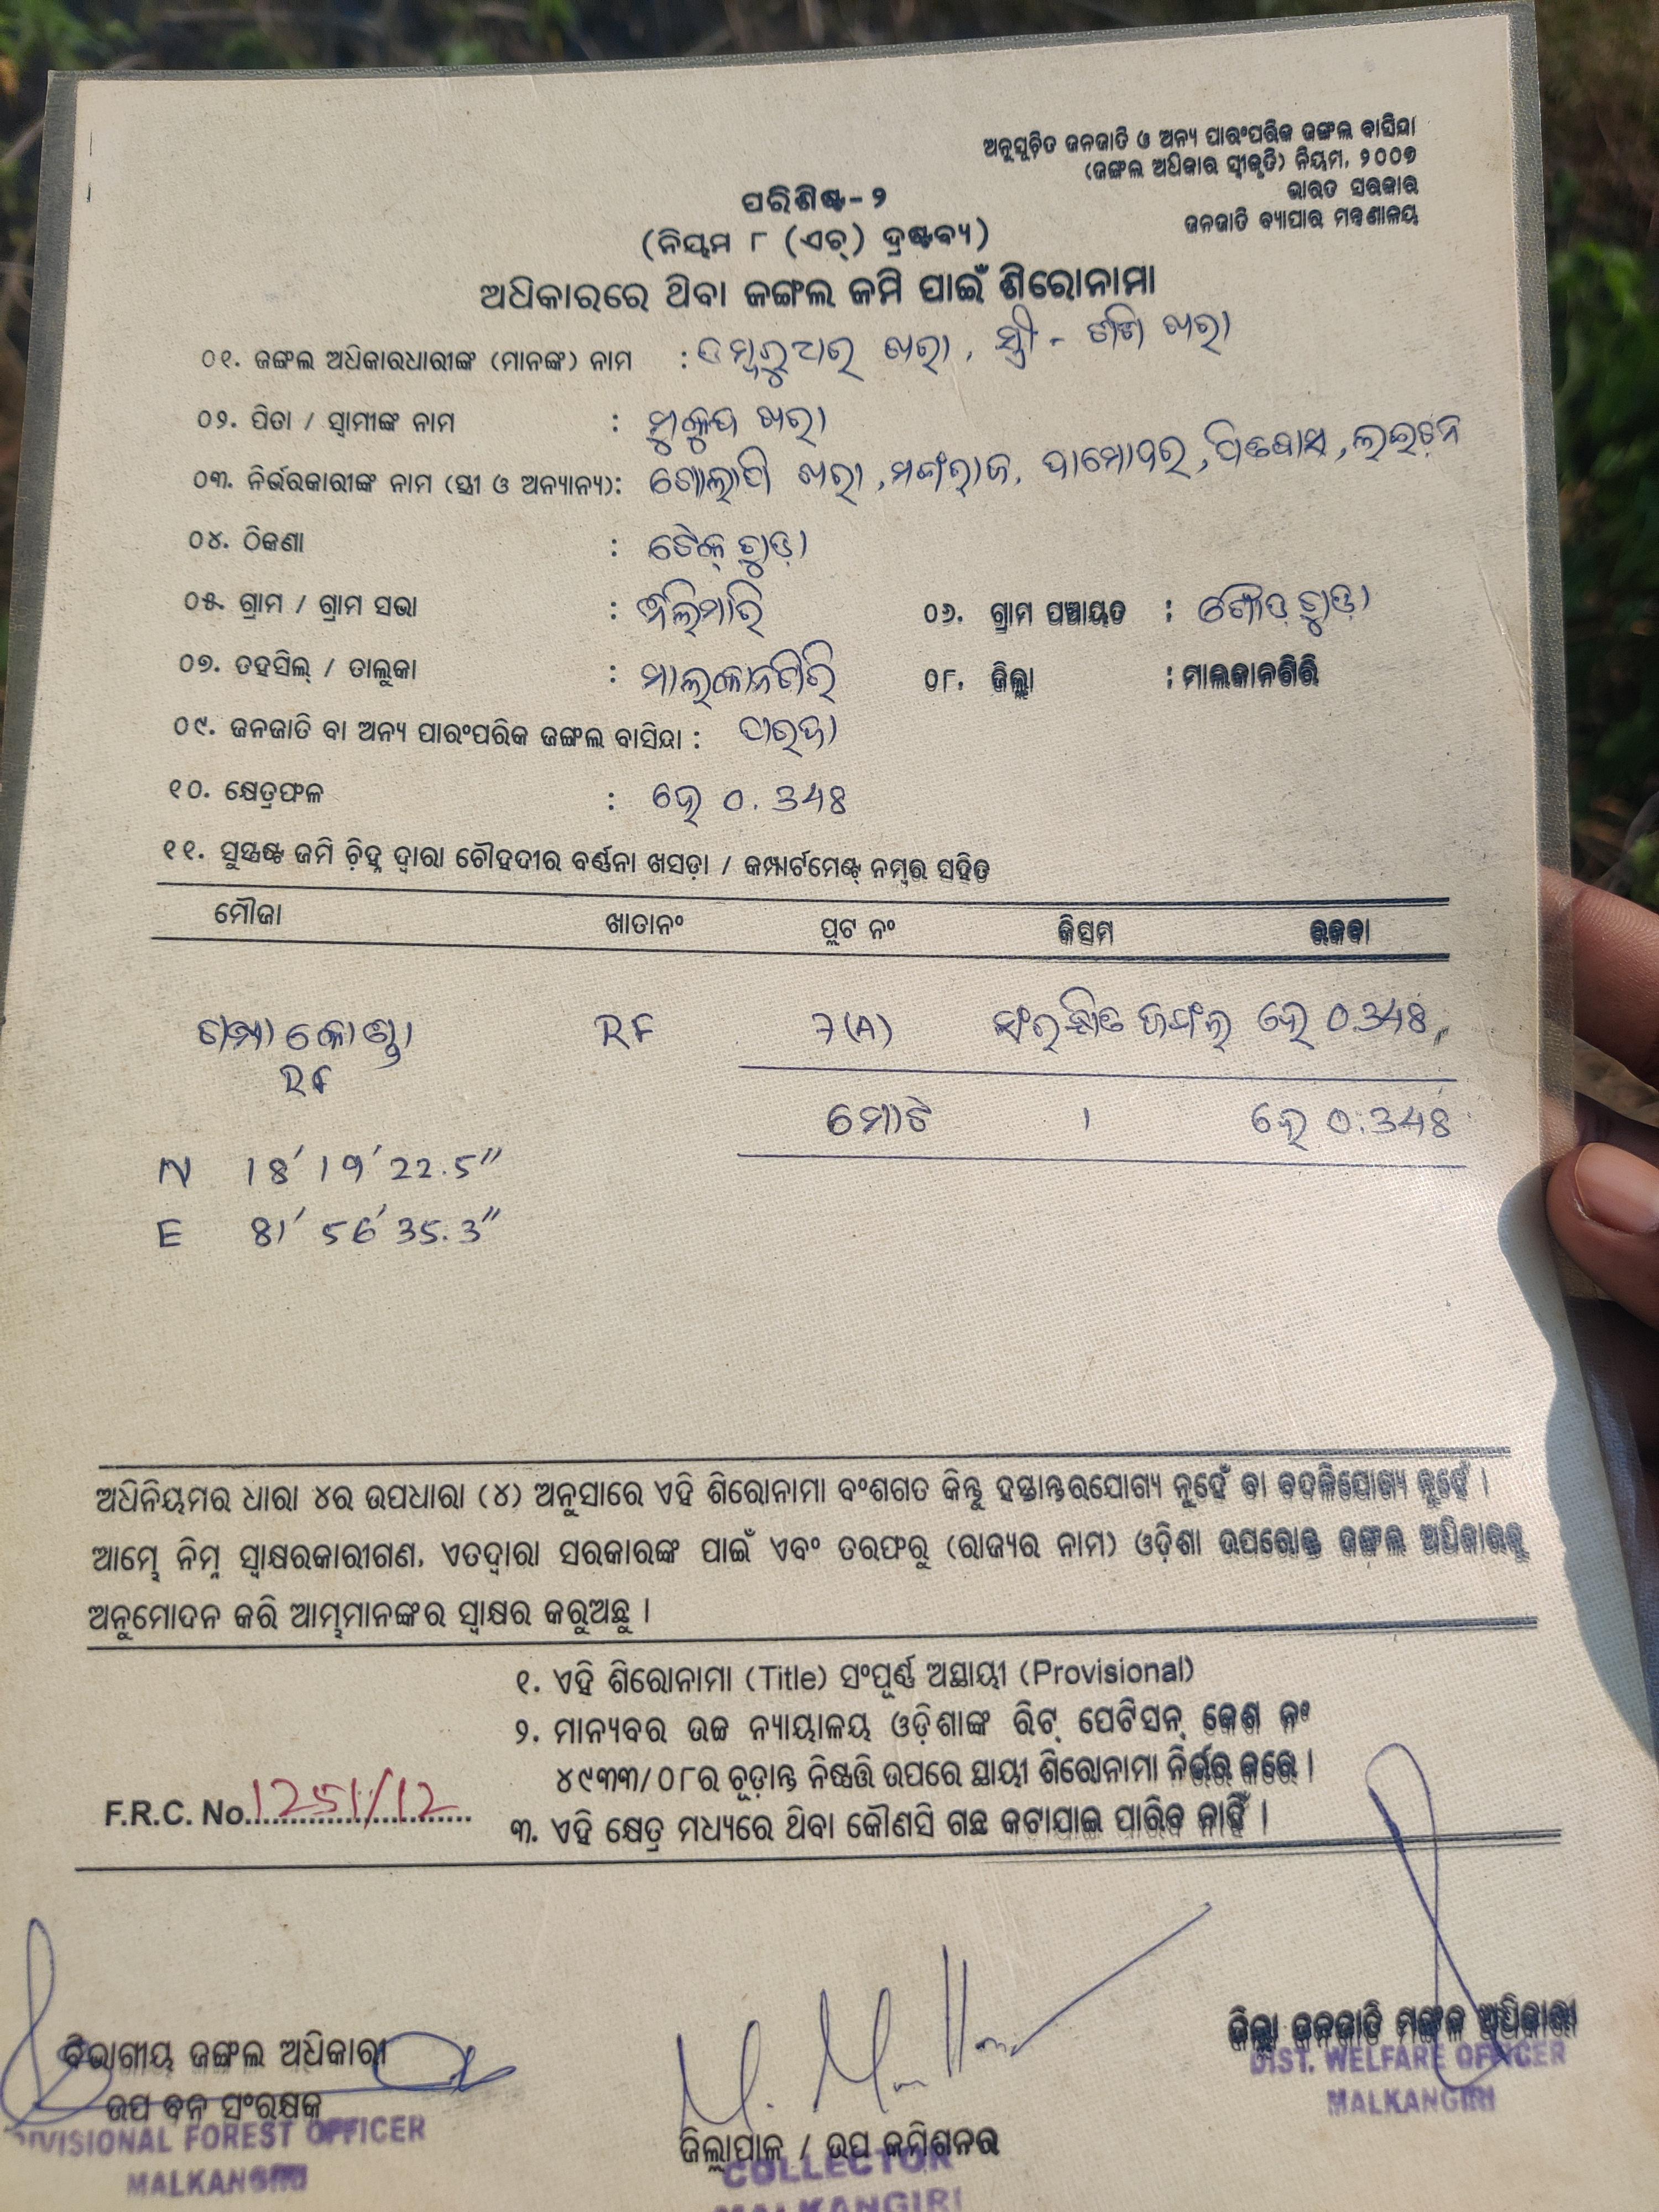 ଅନୁସୂଚିତ ଜନଜାତି ଓ ଅନ୍ୟ ପାରଂପରିକ ଜଙ୍ଗଲ ବାସିନ୍ଦା
(ଜଙ୍ଗଲ ଅଧିକାର ସ୍ୱୀକୃତି) ନିୟମ, ୨୦୦୭
ଭାରତ ସରକାର
ଜନଜାତି ବ୍ୟାପାର ମନ୍ତ୍ରଣାଳୟ
ପରିଶିଷ୍ଟ-୨
(ନିୟମ ୮ (ଏଚ୍) ଦ୍ରଷ୍ଟବ୍ୟ)
ଅଧିକାରରେ ଥିବା ଜଙ୍ଗଲ ଜମି ପାଇଁ ଶିରୋନାମା
୦୧. ଜଙ୍ଗଲ ଅଧିକାରଧାରୀଙ୍କ (ମାନଙ୍କ) ନାମ : ଡମ୍ବରୁଧର ଖରା, ସ୍ତ୍ରୀ -  ଖରା
୦୨. ପିତା / ସ୍ୱାମୀଙ୍କ ନାମ : ମୁକୁନ୍ଦ ଖରା
୦୩. ନିର୍ଭରକାରୀଙ୍କ ନାମ (ସ୍ତ୍ରୀ ଓ ଅନ୍ୟାନ୍ୟ): ଗୋଲାପି ଖରା, ମଙ୍ଗରାଜ, ଦାମୋଦର,
୦୪. ଠିକଣା : ଟେକ୍ ଗୁଡ଼ା
୦୫. ଗ୍ରାମ / ଗ୍ରାମ ସଭା :
୦୬. ଗ୍ରାମ ପଞ୍ଚାୟତ : ଗୌଡ଼ ଗୁଡ଼ା
୦୭. ତହସିଲ୍ / ତାଲୁକା : ମାଲକାନଗିରି
୦୮. ଜିଲ୍ଲା : ମାଲକାନଗିରି
୦୯. ଜନଜାତି ବା ଅନ୍ୟ ପାରଂପରିକ ଜଙ୍ଗଲ ବାସିନ୍ଦା : ପରଜା
୧୦. କ୍ଷେତ୍ରଫଳ : ହେ 0.348
୧୧. ସୁସ୍ପଷ୍ଟ ଜମି ଚିହ୍ନ ଦ୍ୱାରା ଚୌହଦୀର ବର୍ଣ୍ଣନା ଖସଡ଼ା / କମ୍ପାର୍ଟମେଣ୍ଟ୍ ନମ୍ବର ସହିତ
ମୌଜା ଖାତାନଂ ପ୍ଲଟ ନଂ କିସମ ରକବା
କୋଣ୍ଡା RF 7(A) ସଂରକ୍ଷିତ ଜଙ୍ଗଲ ହେ 0.348
RF
ମୋଟ 1 ହେ 0.348
N 18' 19' 22.5"
E 81' 56' 35.3"
ଅଧିନିୟମର ଧାରା ୪ର ଉପଧାରା (୪) ଅନୁସାରେ ଏହି ଶିରୋନାମା ବଂଶଗତ କିନ୍ତୁ ହସ୍ତାନ୍ତରଯୋଗ୍ୟ ନୁହେଁ ବା ବଦଳିଯୋଗ୍ୟ ନୁହେଁ ।
ଆମ୍ଭେ ନିମ୍ନ ସ୍ୱାକ୍ଷରକାରୀଗଣ, ଏତଦ୍ୱାରା ସରକାରଙ୍କ ପାଇଁ ଏବଂ ତରଫରୁ (ରାଜ୍ୟର ନାମ) ଓଡ଼ିଶା ଉପରୋକ୍ତ ଜଙ୍ଗଲ ଅଧିକାରକୁ
ଅନୁମୋଦନ କରି ଆମ୍ଭମାନଙ୍କର ସ୍ୱାକ୍ଷର କରୁଅଛୁ ।
୧. ଏହି ଶିରୋନାମା (Title) ସଂପୂର୍ଣ୍ଣ ଅସ୍ଥାୟୀ (Provisional)
୨. ମାନ୍ୟବର ଉଚ୍ଚ ନ୍ୟାୟାଳୟ ଓଡ଼ିଶାଙ୍କ ରିଟ୍ ପେଟିସନ୍ କେଶ ନଂ
୪୯୩୩/୦୮ର ଚୂଡ଼ାନ୍ତ ନିଷ୍ପତ୍ତି ଉପରେ ସ୍ଥାୟୀ ଶିରୋନାମା ନିର୍ଭର କରେ ।
F.R.C. No. 1251/12
୩. ଏହି କ୍ଷେତ୍ର ମଧ୍ୟରେ ଥିବା କୌଣସି ଗଛ କଟାଯାଇ ପାରିବ ନାହିଁ ।
ବିଭାଗୀୟ ଜଙ୍ଗଲ ଅଧିକାରୀ
ଉପ ବନ ସଂରକ୍ଷକ
DIVISIONAL FOREST OFFICER
MALKANGIRI
ଜିଲ୍ଲାପାଳ / ଉପ କମିଶନର
COLLECTOR
MALKANGIRI
ଜିଲ୍ଲା ଜନଜାତି ମଙ୍ଗଳ ଅଧିକାରୀ
DIST. WELFARE OFFICER
MALKANGIRI